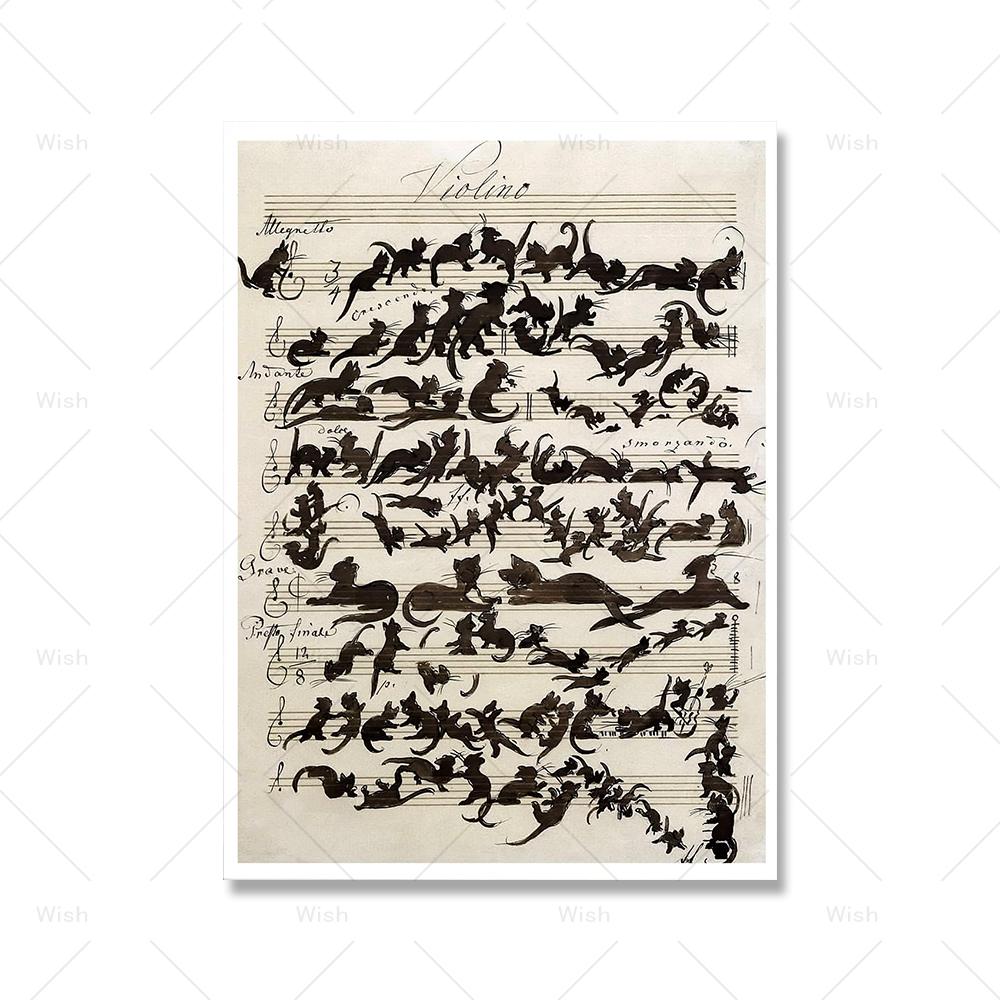 Wish Wish Wish Wish
Violino
Allegretto
3
4
crescendo.
Andante
Wish Wish
dolce
smorzando.
ff.
Grave
8
Presto finale
12
8
Wish Wish
p.
Wish Wish Wish Wish